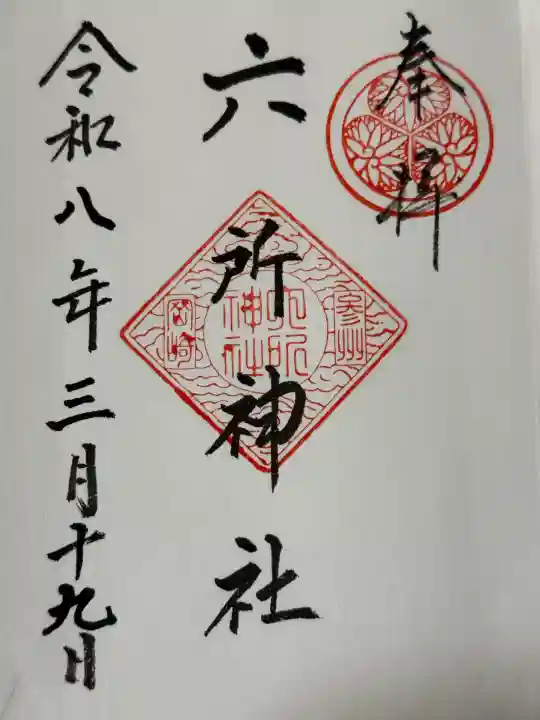 奉拝
六所神社
参州
六所神社
岡崎
令和八年三月十九日